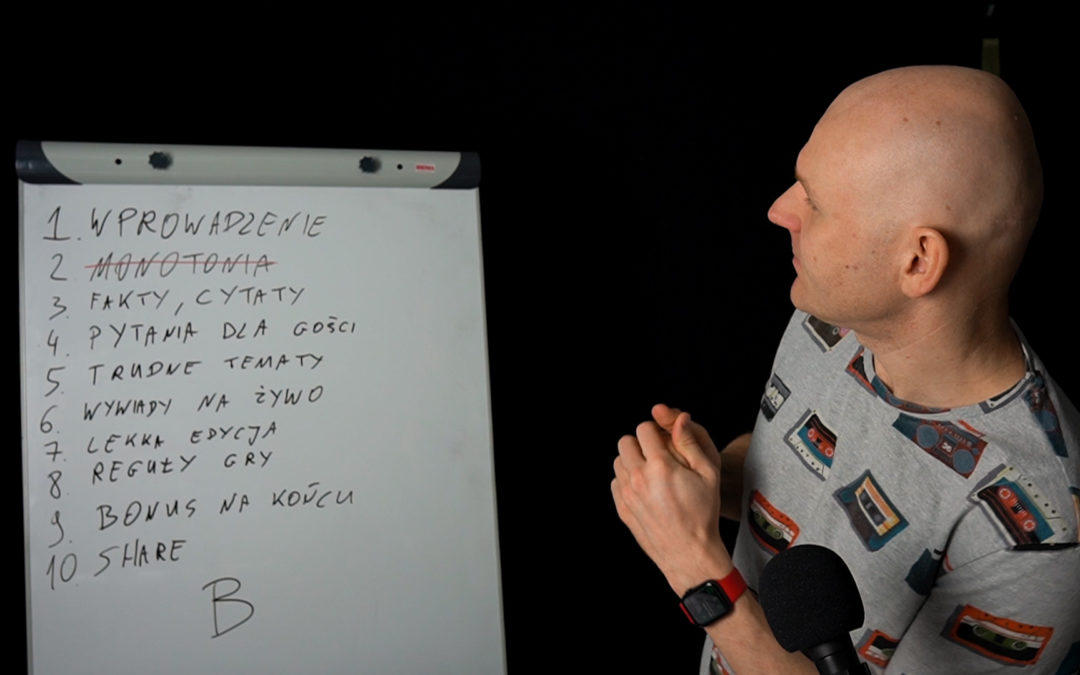 1. WPROWADZENIE
2. MONOTONIA
3. FAKTY, CYTATY
4. PYTANIA DLA GOŚCI
5. TRUDNE TEMATY
6. WYWIADY NA ŻYWO
7. LEKKA EDYCJA
8. REGUŁY GRY
9. BONUS NA KOŃCU
10. SHARE
B